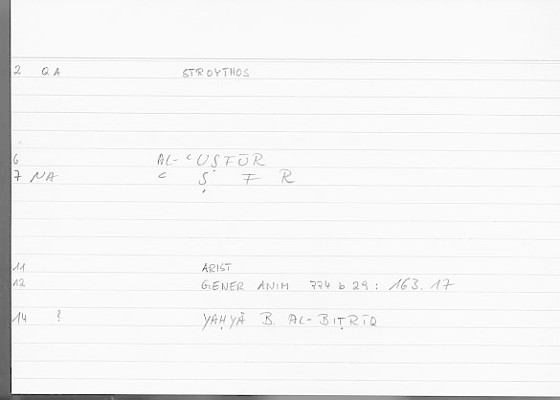 2 QA STROYTHOS
6 AL-ʿUṢFŪR
7 NA ʿ Ṣ F R
11 ARIST
12 GENER ANIM 774 b 29: 163.17
14 ? YAḤYĀ B. AL-BIṬRĪQ